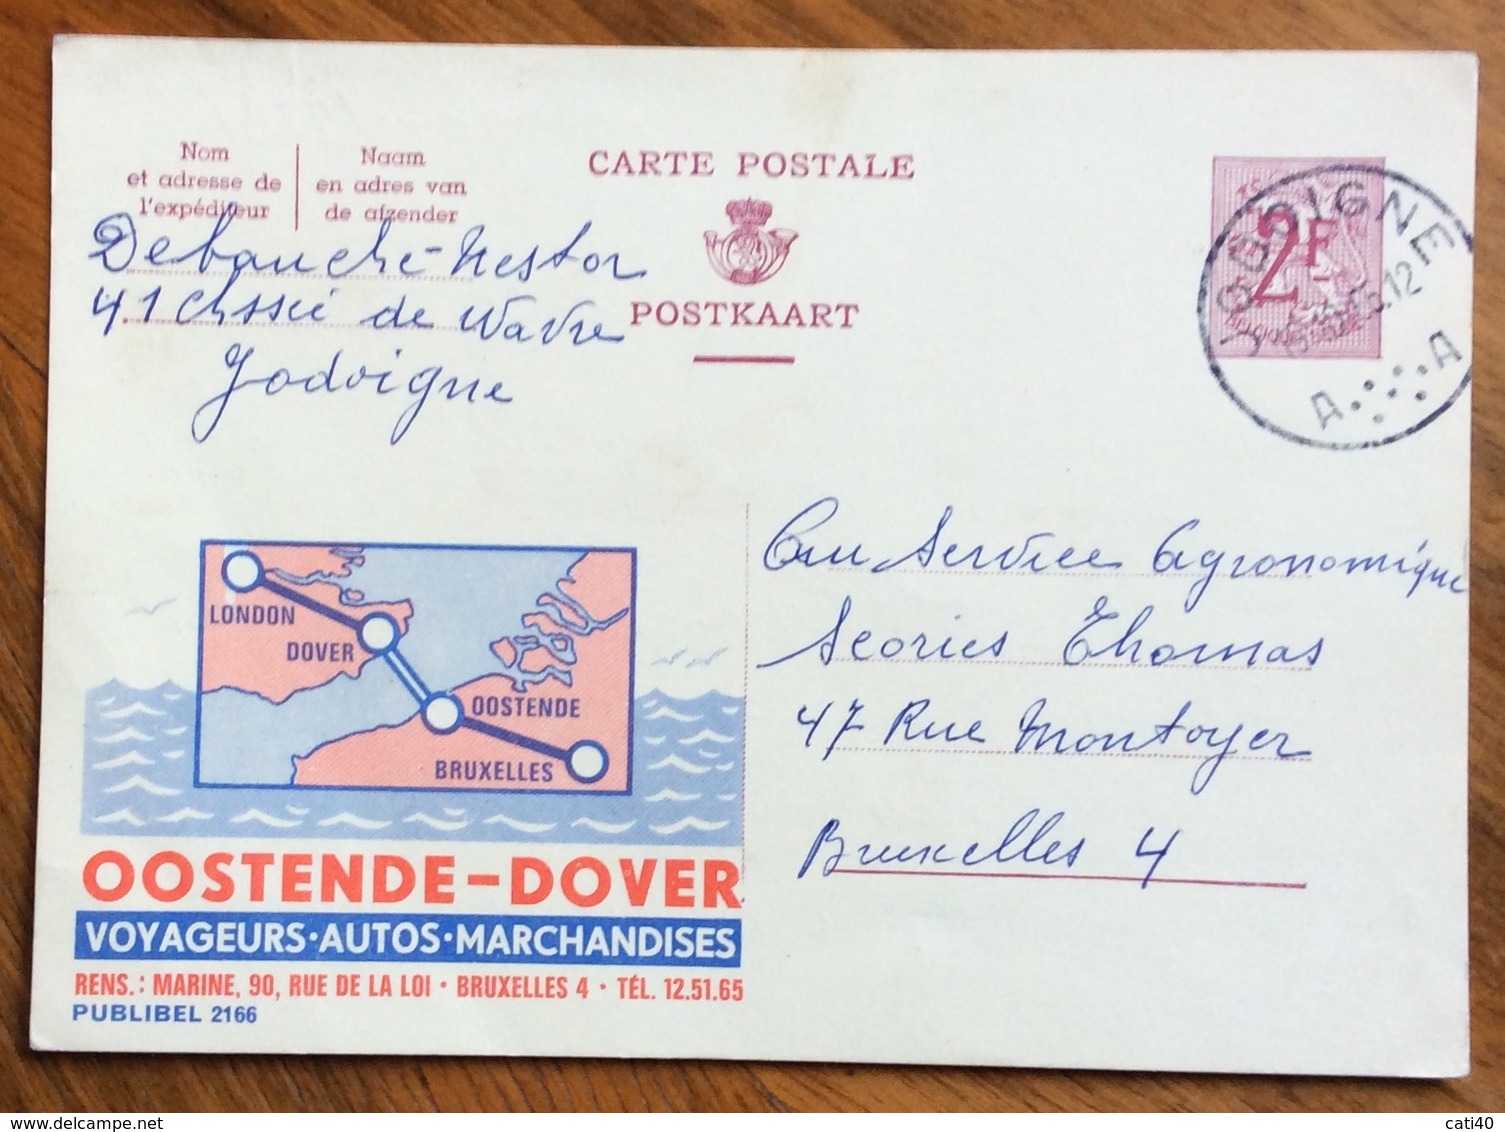 Nom
et adresse de
l'expéditeur
Naam
en adres van
de afzender
CARTE POSTALE
POSTKAART
Debauche-Nestor
41 Chssée de Wavre
Jodoigne
2F
JODOIGNE
12
A A
Au Service Agronomique
Scories Thomas
47 Rue Montoyer
Bruxelles 4
LONDON
DOVER
OOSTENDE
BRUXELLES
OOSTENDE-DOVER
VOYAGEURS·AUTOS·MARCHANDISES
RENS.: MARINE, 90, RUE DE LA LOI · BRUXELLES 4 · TÉL. 12.51.65
PUBLIBEL 2166
cati40